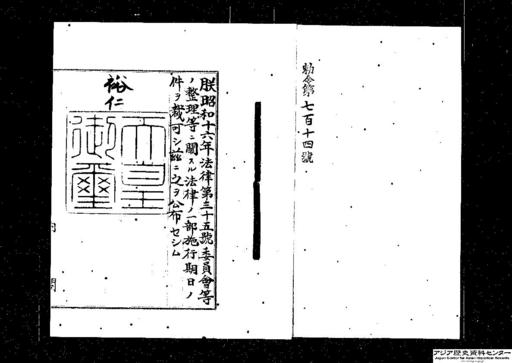 勅令第七百十四號
朕昭和十六年法律第三十五號委員會等
ノ整理等ニ關スル法律ノ一部施行期日ノ
件ヲ裁可シ玆ニ之ヲ公布セシム
裕仁
天皇
御璽
内 閣
アジア歴史資料センター
Japan Center for Asian Historical Records